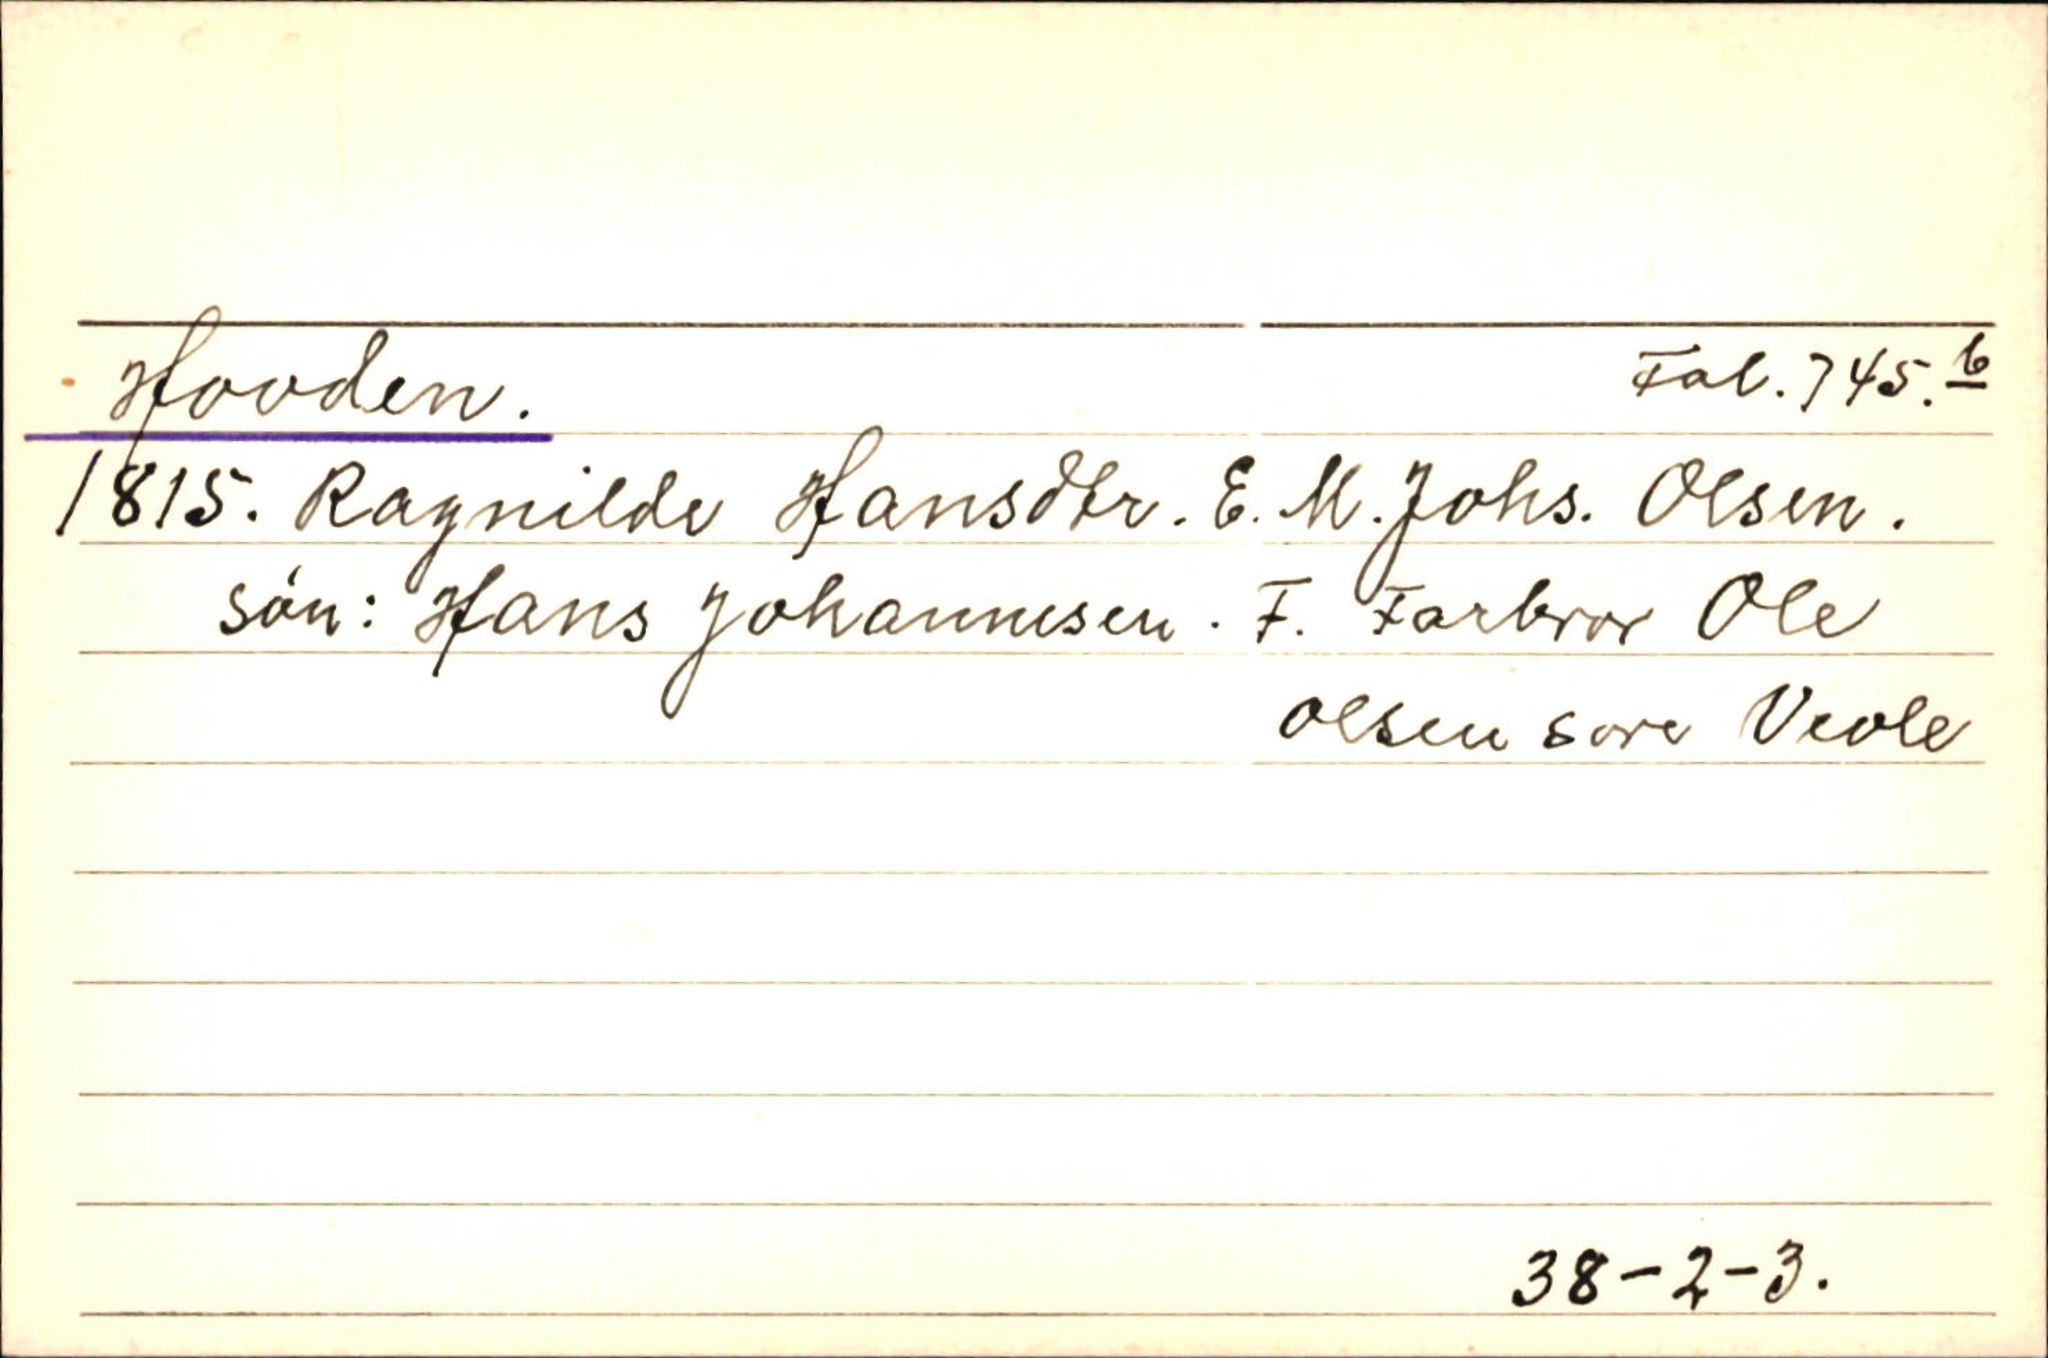 Hovden. Fol. 745.b
1815. Ragnilde Hansdtr. E. M. Johs. Olsen.
sön: Hans Johannesen. F. Farbror Ole
Olsen
38-2-3.